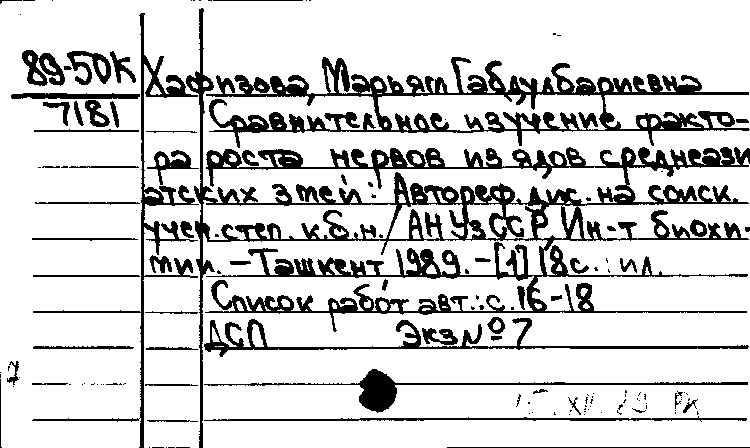 89-50К Хафизова, Марьям Габдулбариевна
7181 Сравнительное изучение факто-
ра роста нервов из ядов среднеази
атских змей: Автореф. дис. на соиск.
учен. степ. к.б.н. / АН УзССР, Ин-т биохи-
мии. – Ташкент 1989. – [1] 18 с. : ил.
Список работ авт.: с. 16-18
ДСП Экз № 7
7
15.XII.89 РК